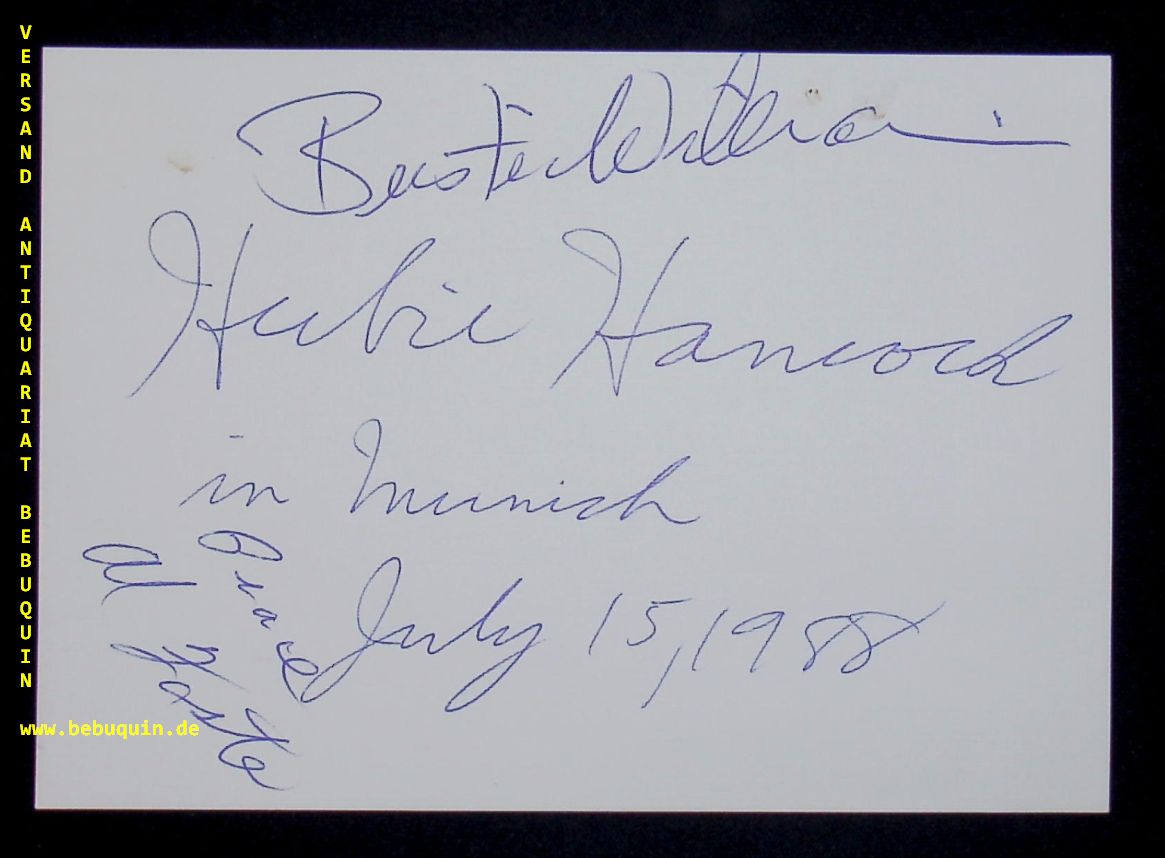 VERSAND ANTIQUARIAT BEBUQUIN
Buster Williams
Herbie Hancock
in Munich
July 15, 1988
Al Foster
www.bebuquin.de